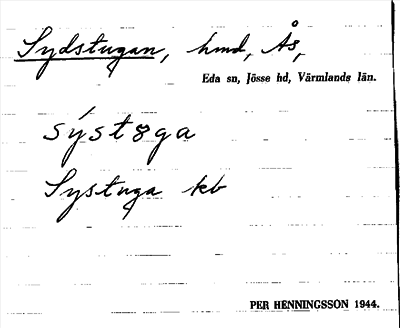 Sydstugan, hmd, Ås,
Eda sn, Jösse hd, Värmlands län.
sýstøga
Systuga kb
PER HENNINGSSON 1944.